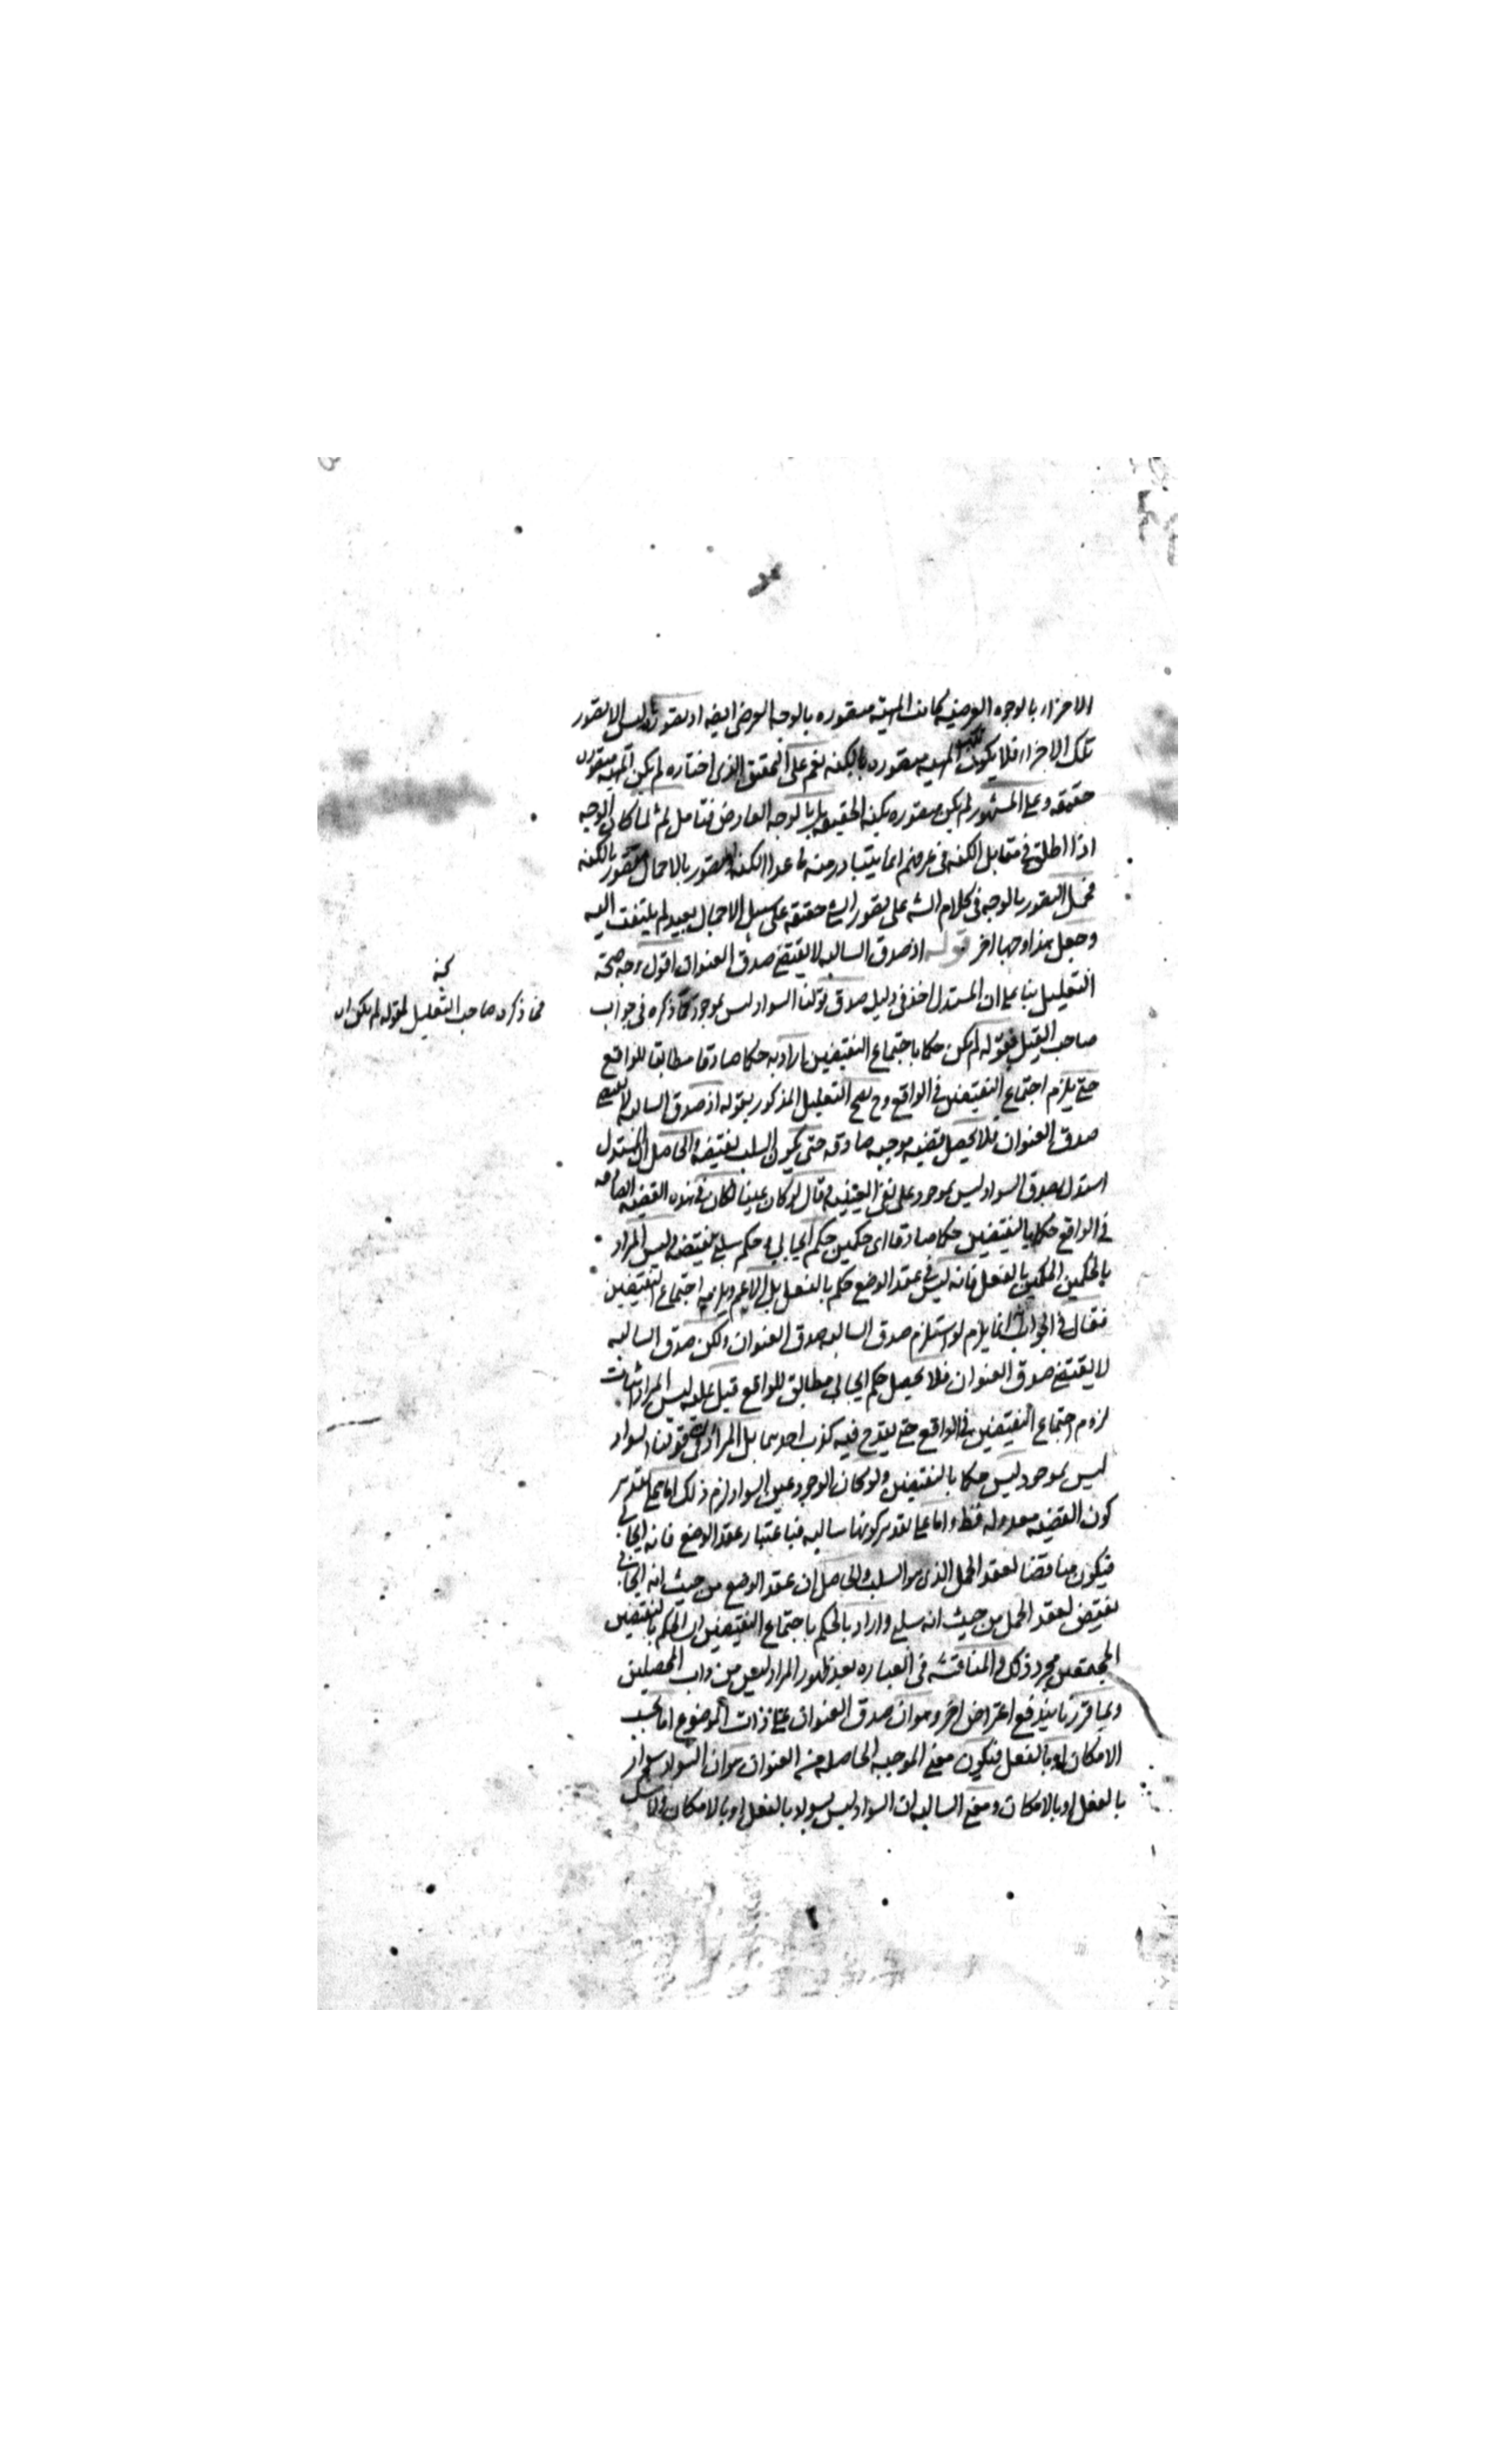 الاجزاء بالوجوه العرضيه كانت الماهيّة متصوره بالوجه العرضى ايضا اذ تصور ليس الا تصور
تلك الاجزاء فلا يكون المهيه متصوره بالكنه نعم على التحقيق الذى اختاره لم يكن المهيه متصوره
حقيقه وعلى المشهور لم يكن متصوره بكنه الحقيقه بل بالوجه العارض فتأمل ثم لما كان الوجه
اذا اطلق فى مقابل الكنه فى عرفهم انما يتبادر منه ما عدا الكنه والتصور بالاجمال تصور بالكنه
فحمل التصور بالوجه فى كلام الشه على تصور الشئ حقيقه على سبيل الاجمال بعيد لم يلتفت اليه
وجعل هذا وجها اخر قوله اذ صدق السالبه لا يقتضى صدق العنوان اقول وجه صحة
التعليل بناء على ان المستدل اخذ فى دليله صدق قولنا السواد ليس بموجود كما ذكره فى جواب
صاحب القيل فقوله لم يكن حكما باجتماع النقيضين اراد به حكما صادقا مطابقا للواقع
حتى يلزم اجتماع النقيضين فى الواقع وح يصح التعليل المذكور بقوله اذ صدق السالبه لا يقتضى
صدق العنوان فلا يحصل قضيه موجبه صادقه حتى يكون السلب نقيضه والحاصل ان المستدل
استدل بصدق السواد ليس بموجود على نفى العينيه فقال لو كان عينا لكان فى هذه القضيه الصادقه
فى الواقع حكما بالنقيضين حكما صادقا اى حكمين حكم ايجابى وحكم سلبى نقيضه وليس المراد
بالحكمين الحكمين بالفعل فانه ليس فى عقد الوضع حكم بالفعل بل الاعم ويلزمه اجتماع النقيضين
فقال فى الجواب انما يلزم لو استلزم صدق السالبه صدق العنوان ولكن صدق السالبه
لا يقتضى صدق العنوان فلا يحصل حكم ايجابى مطابق للواقع قيل عليه ليس المراد اثبات
لزوم اجتماع النقيضين فى الواقع حتى يقدح فيه كذب احدهما بل المراد ان قولنا السواد
ليس بموجود ليس حكما بالنقيضين ولو كان الوجود عين السواد لزم ذلك اما على تقدير
كون القضيه معدوله فظ واما على تقدير كونها سالبه فباعتبار عقد الوضع فانه ايجابى
فيكون مناقضا لعقد الحمل الذى هو السلب والحاصل ان عقد الوضع من حيث انه ايجابى
نقيض لعقد الحمل من حيث انه سلبى واراد بالحكم باجتماع النقيضين الحكم بالنقيضين
المجتمعين مجرد ذلك والمناقشه فى العباره بعد ظهور المراد ليس من داب المحصلين
وبما قررنا يندفع اعتراض اخر وهو ان صدق العنوان على ذات الموضوع اما بحسب
الامكان او بالفعل فيكون معنى الموجبه الحاصله من العنوان هو ان السواد سواد
بالفعل او بالامكان ومعنى السالبه ان السواد ليس بسواد بالفعل او بالامكان ولا شك
فما ذكره صاحب التعليل لقوله لم يكن اه